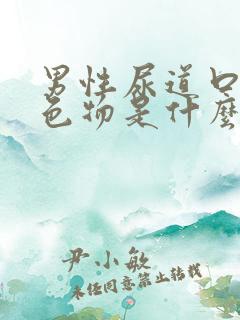 男性尿道口
色物是什麼
尹小敏
未经同意禁止转载